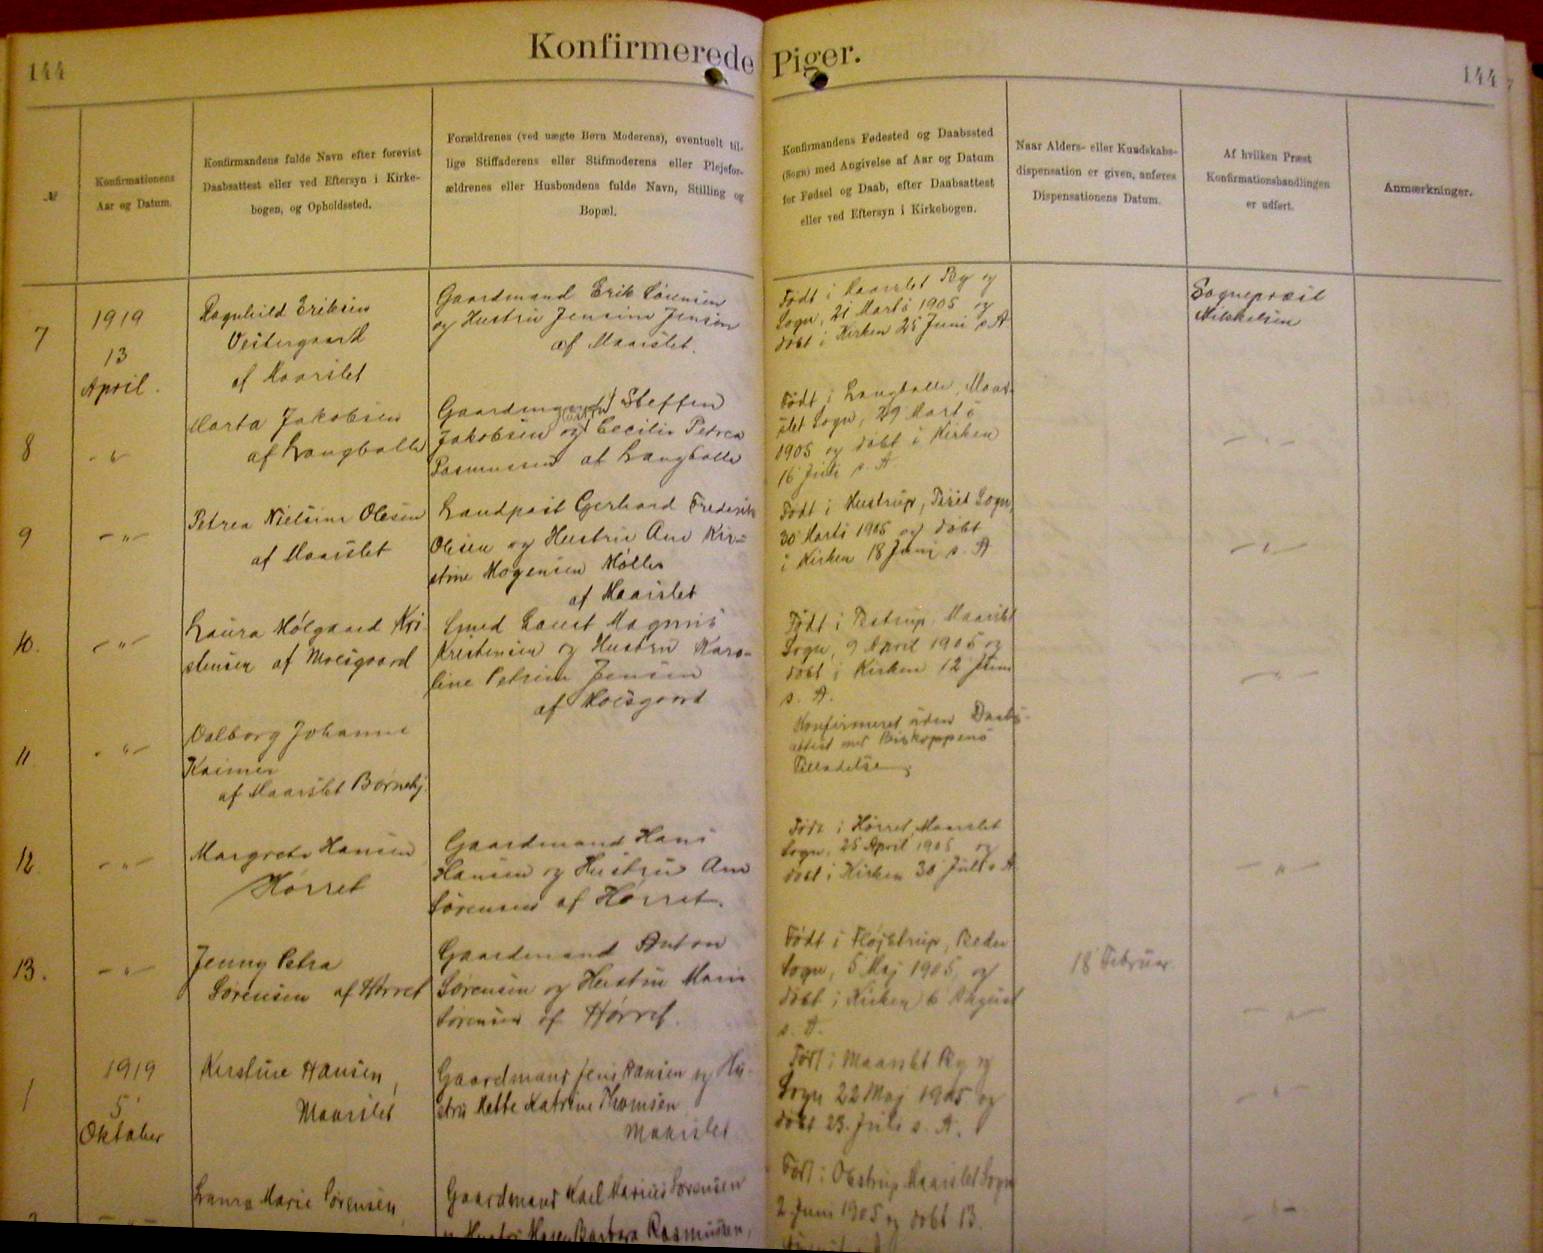 144
Konfirmerede Piger.
144
№
Konfirmationens
Aar og Datum.
Konfirmandens fulde Navn efter forevist
Daabsattest eller ved Eftersyn i Kirke-
bogen, og Opholdssted.
Forældrenes (ved uægte Børn Moderens), eventuelt til-
lige Stiffaderens eller Stifmoderens eller Plejefor-
ældrenes eller Husbondens fulde Navn, Stilling og
Bopæl.
Konfirmandens Fødested og Daabssted
(Sogn) med Angivelse af Aar og Datum
for Fødsel og Daab, efter Daabsattest
eller ved Eftersyn i Kirkebogen.
Naar Alders- eller Kundskabs-
dispensation er given, anføres
Dispensationens Datum.
Af hvilken Præst
Konfirmationshandlingen
er udført.
Anmærkninger.
7
1919
13
April.
Ragnhild Eriksen
Vestergaard
af Maarslet
Gaardmand Erik Sørensen
og Hustru Jensine Jensen
af Maarslet.
Født i Maarslet By og
Sogn, 21 Marts 1905 og
døbt i Kirken 25 Juni s. A.
Sognepræst
Mikkelsen
8
- " -
Marta Jakobsen
af Langballe
Gaardmand Steffen
Jakobsen og Hustru Cecilie Petrea
Rasmussen af Langballe
Født i Langballe, Maar-
slet Sogn, 29 Marts
1905 og døbt i Kirken
16 Juli s. A
- " -
9
- " -
Petrea Nielsine Olesen
af Maarslet
Landpost Gerhard Frederik
Olesen og Hustru Ane Kir-
stine Mogensen Møller
af Maarslet
Født i Hustrup, Sogn,
30 Marts 1905 og døbt
i Kirken 18 Juni s. A
- " -
10.
- " -
Laura Mølgaard Kri
stensen af Moesgaard
Smed Laust Magnus
Kristensen og Hustru Karo-
line Petrine Jensen
af Moesgaard
Født i Battrup, Maarslet
Sogn, 9 April 1905 og
døbt i Kirken 12 Juni
s. A.
- " -
11
- " -
Valborg Johanne
af Maarslet Børnehj.
Konfirmeret uden Daabs-
attest med Biskoppens
Tilladelse
12
- " -
Margrete Hansen
Hørret
Gaardmand Hans
Hansen og Hustru Ane
Sørensen af Hørret.
Født i Hørret, Maarslet
Sogn, 25 April 1905 og
døbt i Kirken 30 Juli s. A
- " -
13.
- " -
Jenny Petra
Sørensen af Hørret
Gaardmand Anton
Sørensen og Hustru Marie
Sørensen af Hørret.
Født i Fløjstrup, Beder
Sogn, 5 Maj 1905, og
døbt i Kirken 6 August
s. A.
18 Februar
- " -
1
1919
5'
Oktober
Kirstine Hansen,
Maarslet
Gaardmand Jens Hansen og Hu-
stru Mette Katrine Thomsen
Maarslet
Født i Maarslet By og
Sogn 22 Maj 1905 og
døbt 23. Juli s. A.
- " -
2
- " -
Laura Marie Sørensen,
Gaardmand Karl Marius Sørensen
og Hustru Maren Barbara Rasmussen,
Født i Obstrup Maarslet Sogn
2. Juni 1905 og døbt 13.
- " -